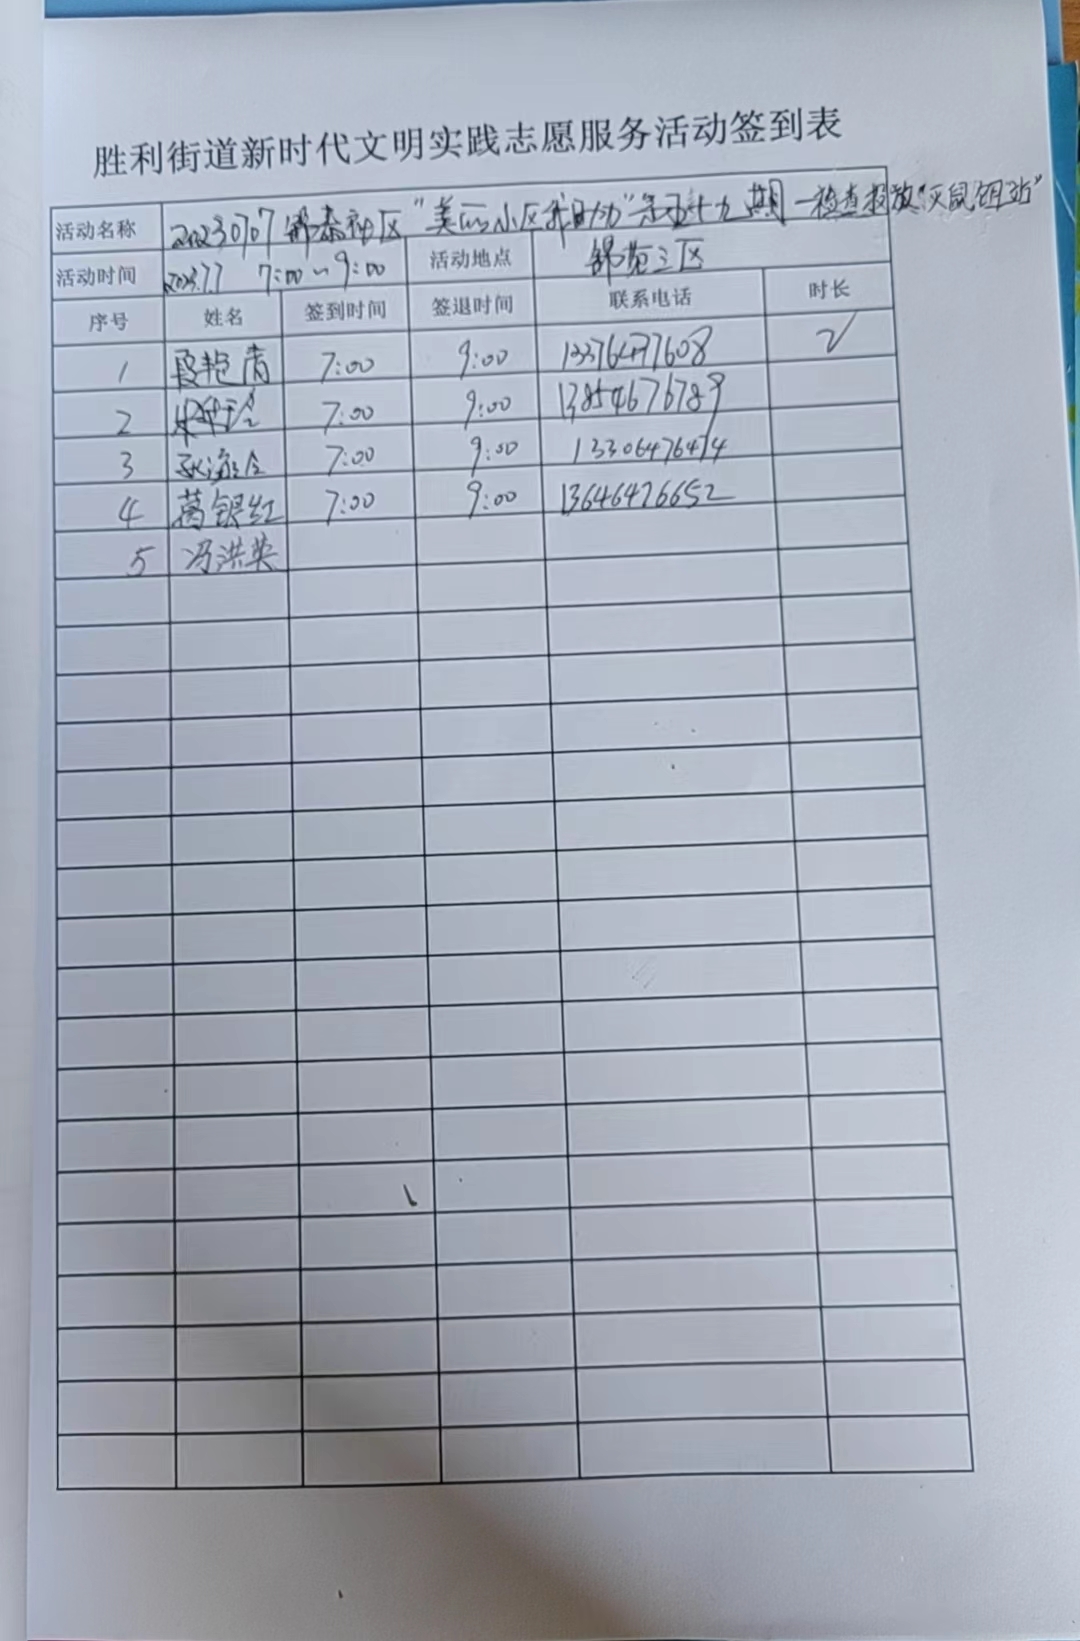 胜利街道新时代文明实践志愿服务活动签到表
活动名称 20230707锦泰社区“美丽小区我助力”第五十九期—检查投放“灭鼠饵站”
活动时间 2023.7.7 7:00~9:00 活动地点 锦苑三区
序号 姓名 签到时间 签退时间 联系电话 时长
1 段艳青 7:00 9:00 13376477608 2
2 7:00 9:00 13854676789
3 7:00 9:00 13306476474
4 葛银红 7:00 9:00 13646476652
5 冯洪英